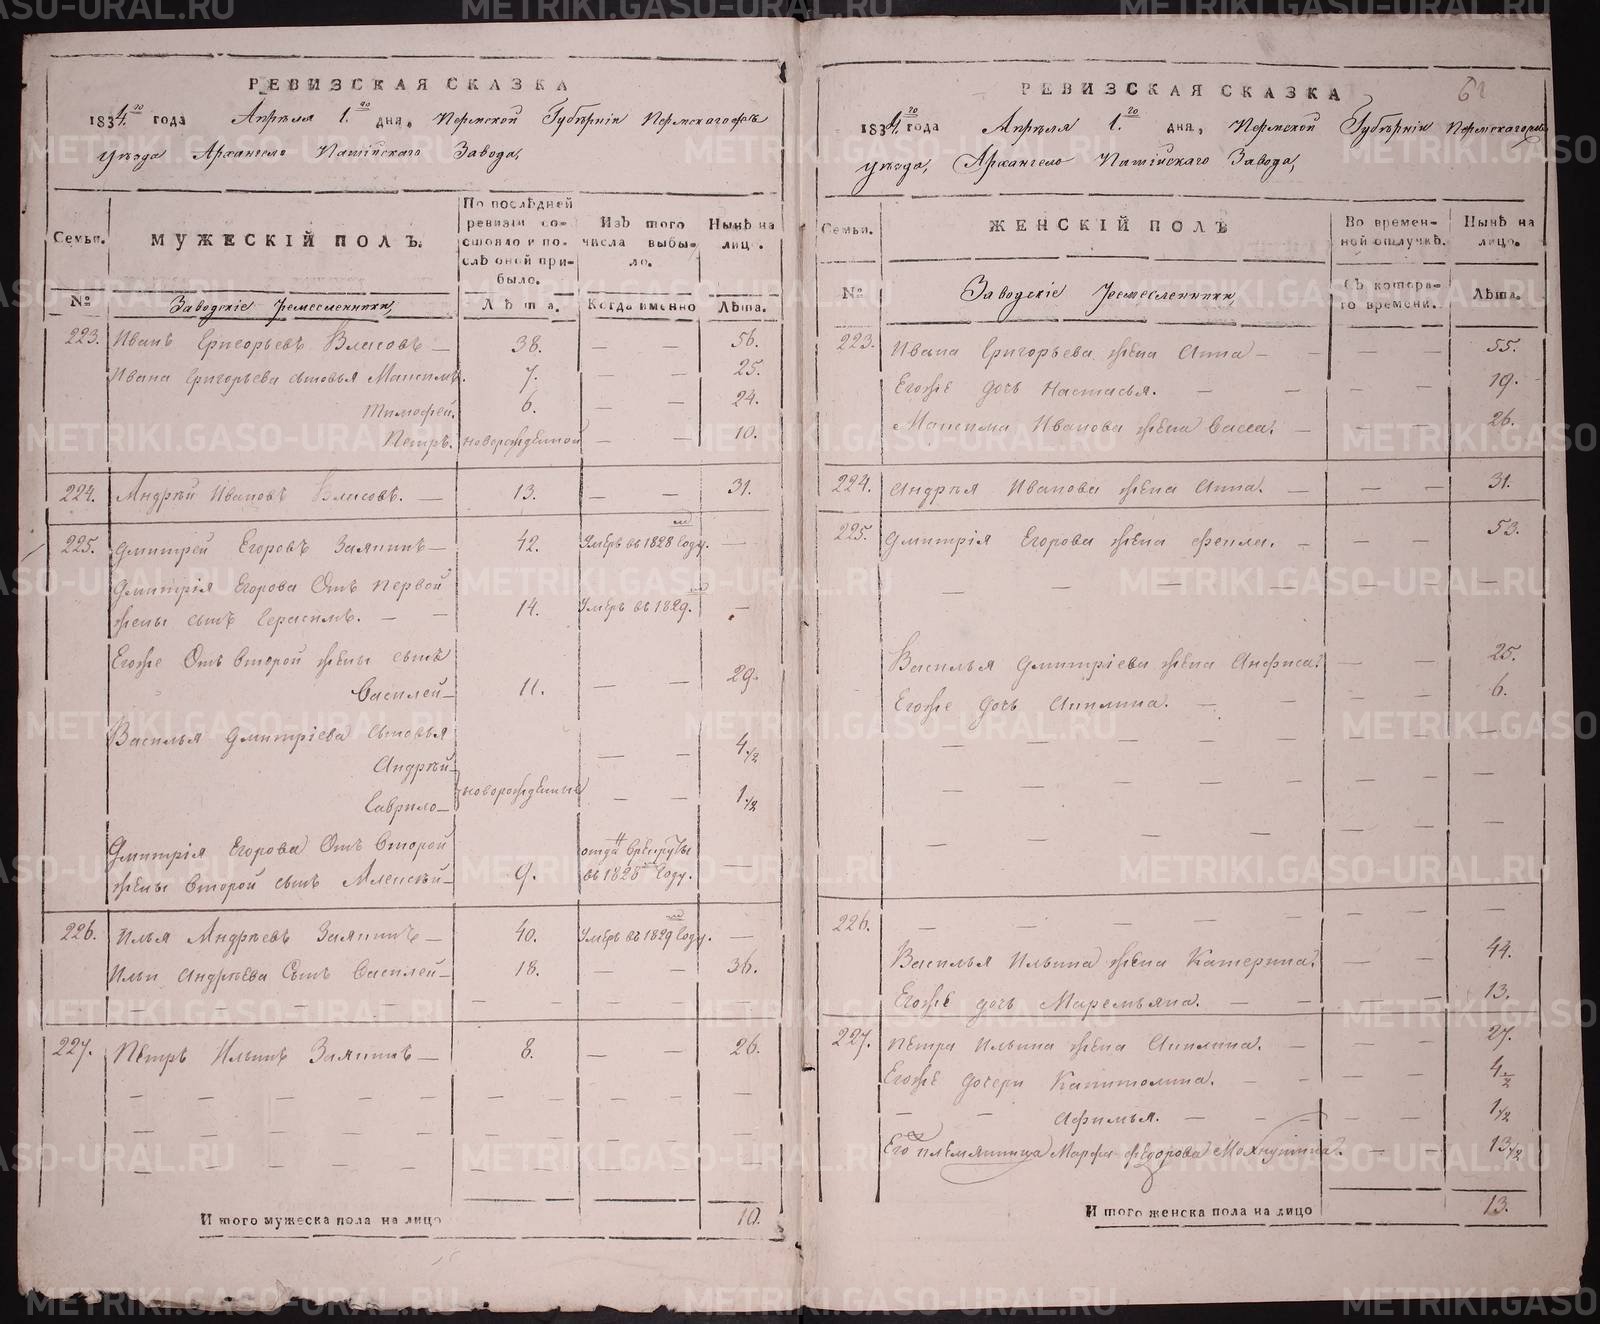 РЕВИЗСКАЯ СКАЗКА
1834.го года Апрѣля 1.го дня, Пермской Губѣрніи Пермскаго
уѣзда Архангело Пашійскаго Завода,
Семьи.
МУЖЕСКІЙ ПОЛЪ.
По послѣдней ревизіи со-
стояло и по-
слѣ оной при-
было.
Изъ того
числа выбы-
ло.
Нынѣ на
лицо.
№
Заводскіе Ремесленники,
Лѣта.
Когда именно
Лѣта.
223. Иванъ Григорьевъ Власовъ — 38. — — 56.
Ивана Григорьева сыновья Максимъ. 7. — — 25.
Тимофей. 6. — — 24.
Петръ. новорожденной — — 10.
224. Андрѣй Ивановъ Власовъ. — 13. — — 31.
225. Дмитрей Егоровъ Заякинъ — 42. Умеръ въ 1828 году. —
Дмитрія Егорова Отъ первой
жены сынъ Герасимъ. — — 14. Умеръ въ 1829. —
Егоже Отъ Второй жены сынъ
Василей — 11. — — 29.
Василья Дмитріева сыновья
Андрѣй — — — 4 1/2
новорожденные
Гаврило — — — 1 1/2
Дмитрія Егорова Отъ Второй
жены Второй сынъ Алексѣй — 9. отданъ въ рекруты
въ 1828 году. —
226. Илья Андрѣевъ Заякинъ — 40. Умеръ въ 1829 году. —
Ильи Андрѣева Сынъ Василей — 18. — — 36.
227. Петръ Ильинъ Заякинъ — 8. — — 26.
И того мужеска пола на лицо 10.
РЕВИЗСКАЯ СКАЗКА
1834.го года Апрѣля 1.го дня, Пермской Губѣрніи Пермскаго
уѣзда, Архангело Пашійскаго Завода,
Семьи.
ЖЕНСКІЙ ПОЛЪ
Во времен-
ной отлучкѣ.
Нынѣ на
лицо.
№
Заводскіе Ремесленники,
Съ котора-
го времени.
Лѣта.
223. Ивана Григорьева жена Анна — — — 55.
Егоже дочь Настасья. — — — — 19.
Максима Иванова жена Васса. — — — 26.
224. Андрѣя Иванова жена Анна. — — — 31.
225. Дмитрія Егорова жена Фекла. — — — 53.
Василья Дмитріева жена Анфиса. — — 25.
Егоже дочь Акилина. — — 6.
226. — — —
Василья Ильина жена Катерина. — — 44.
Егоже дочь Маремьяна. — — — — 13.
227. Петра Ильина жена Акилина. — — — 27.
Егоже дочери Капитолина. — — — — 4 1/2
— — Афимья. — — — — 1 1/2
Его племянница Марфа Федорова Мохнутина. — — 13 1/2
И того женска пола на лицо 13.
METRIKI.GASO-URAL.RU